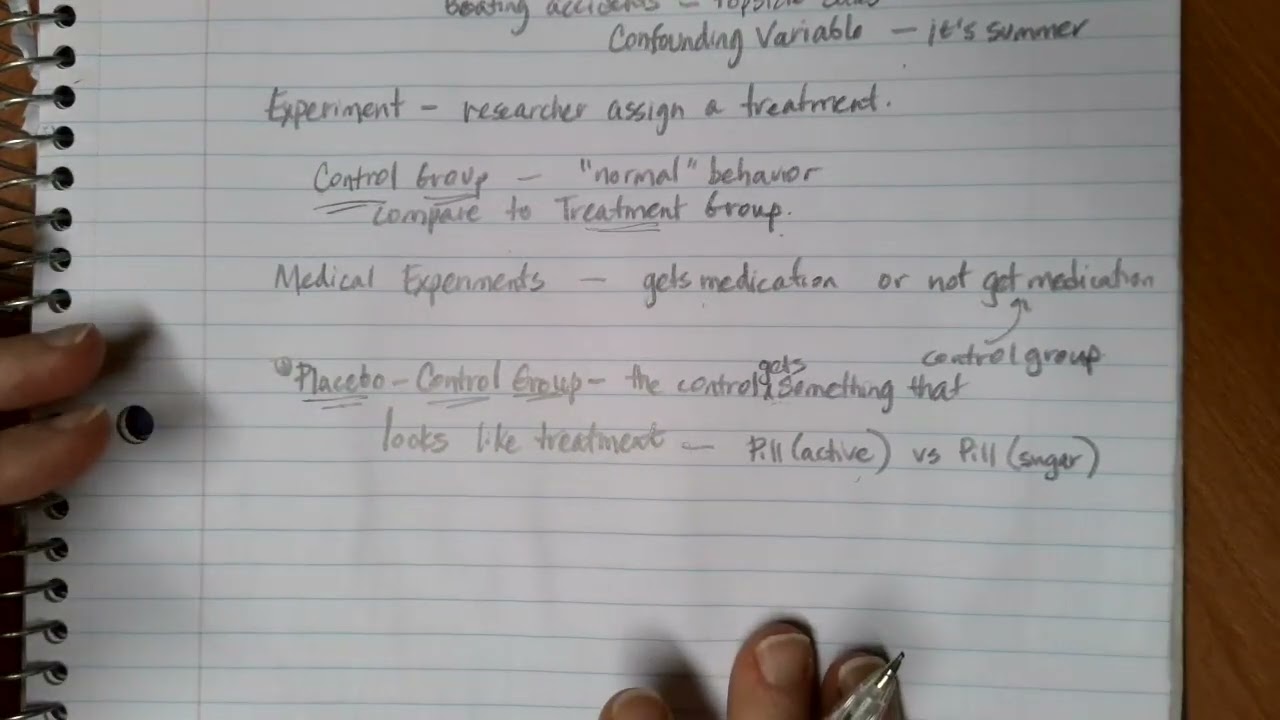 Boating accidents –
Confounding Variable – it's summer
Experiment – researcher assign a treatment.
Control Group – "normal" behavior
compare to Treatment Group.
Medical Experiments – gets medication or not get medication
control group
Placebo – Control Group – the control gets something that
looks like treatment – Pill (active) vs Pill (sugar)